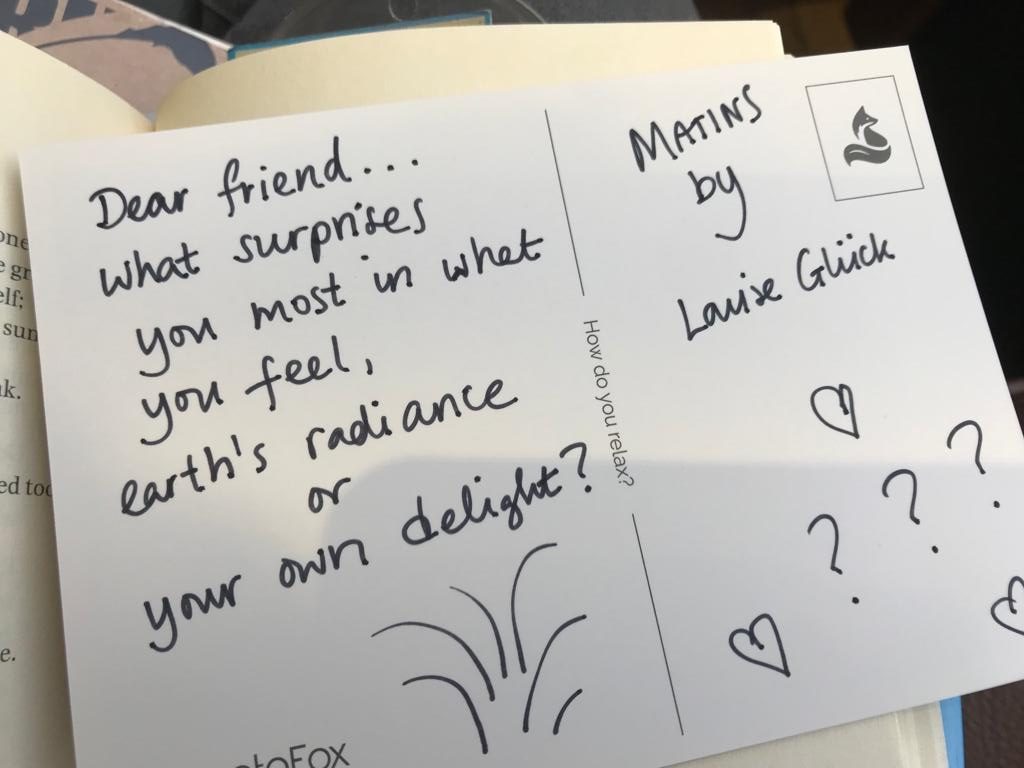 Dear friend...
what surprises
you most in what
you feel,
earth's radiance
or
your own delight?
MATINS
by
Louise Glück
? ? ?
How do you relax?
otoFox
one
e gr
elf;
sun
k.
ed too
e.